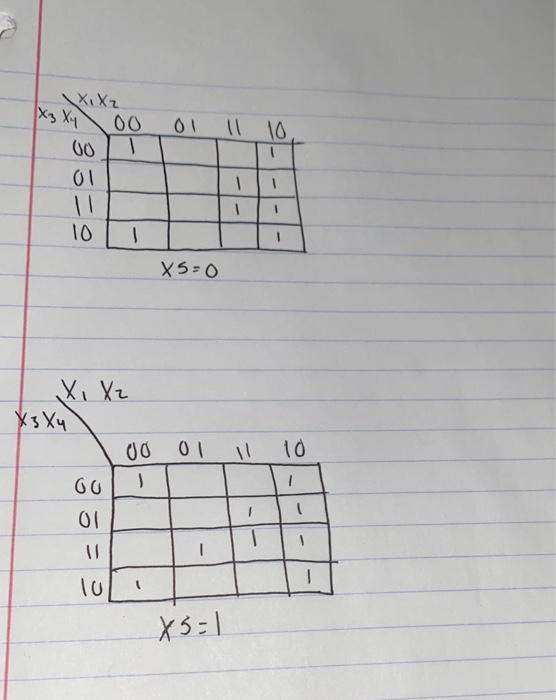 X1 X2
X3 X4 00 01 11 10
00 1 1
01 1 1
11 1 1
10 1 1
X5=0
X1 X2
X3 X4
00 01 11 10
00 1 1
01 1 1
11 1 1 1
10 1 1
X5=1